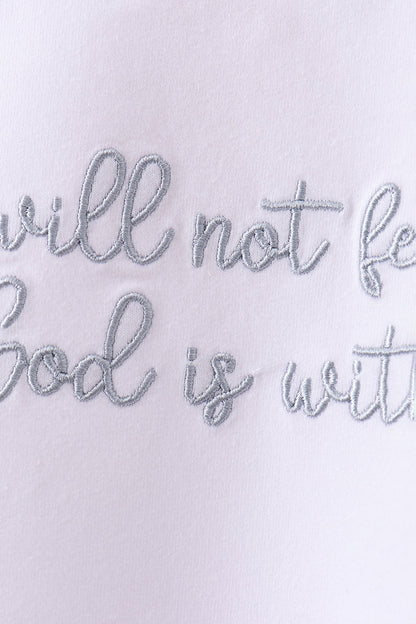 will not fe
God is with